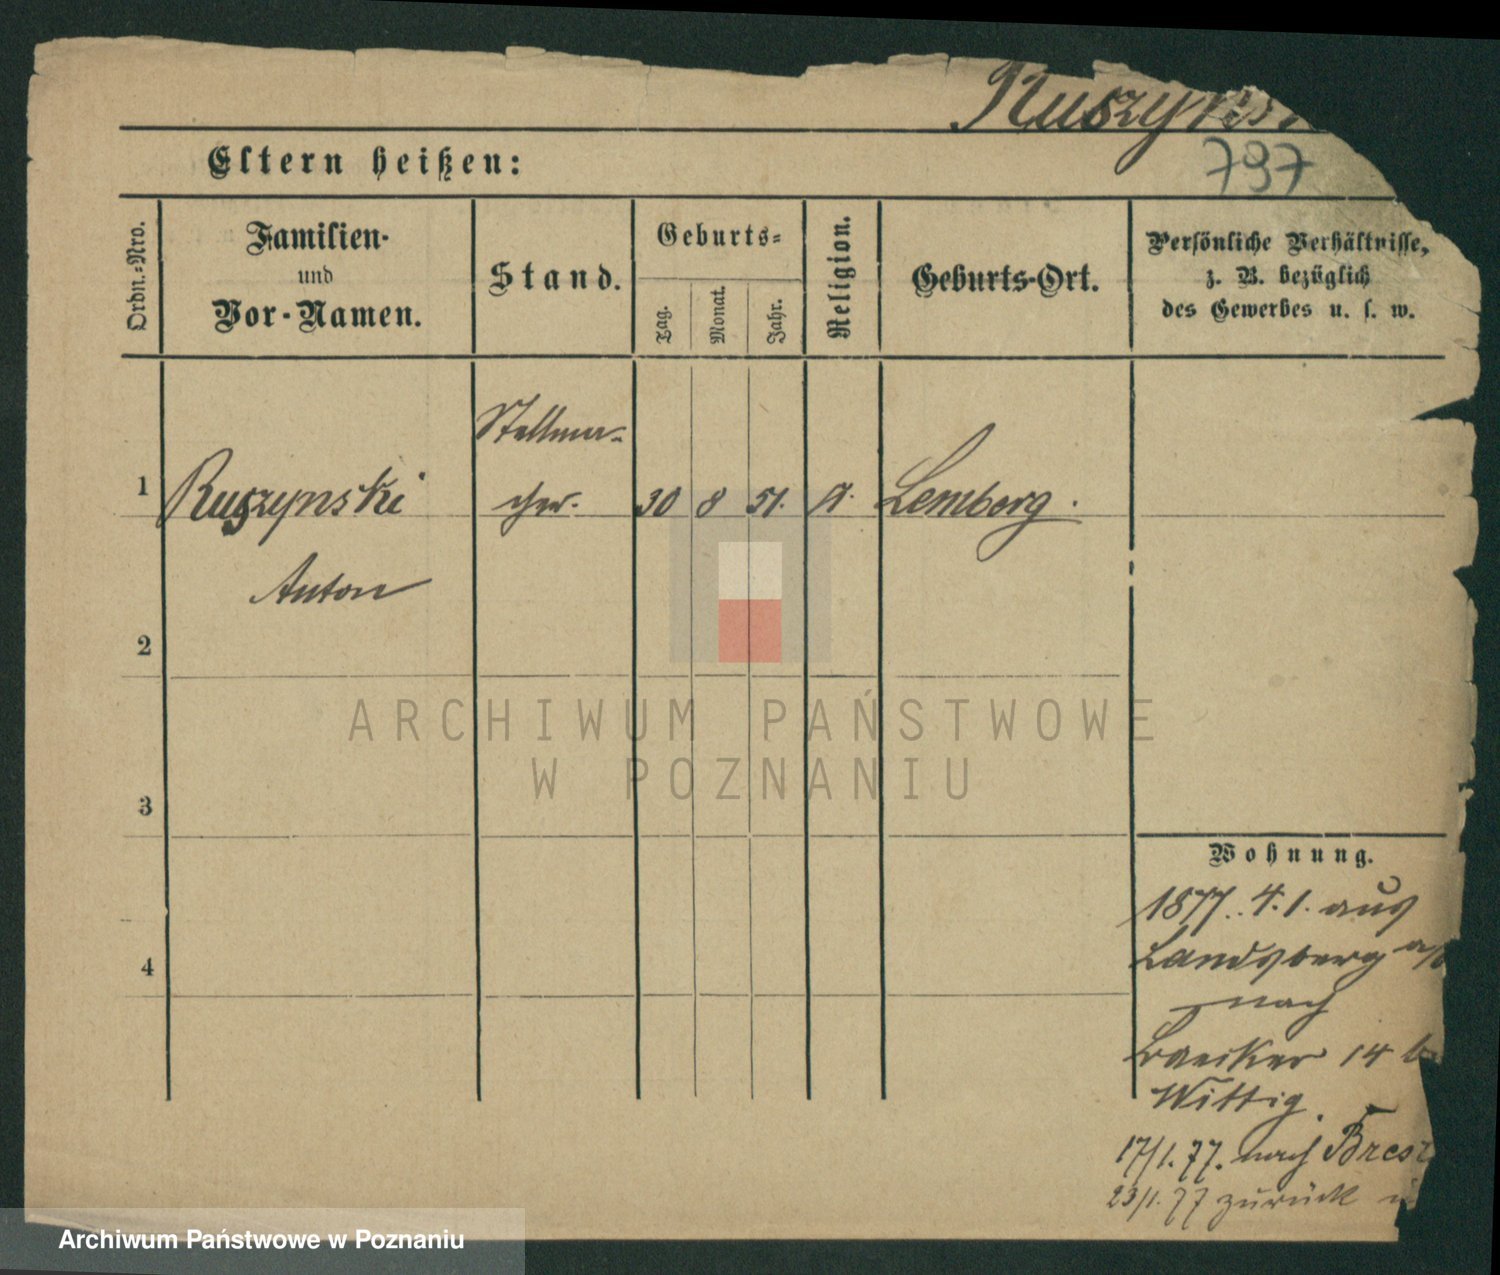 Ruszynski
797
Eltern heißen:
Ordn.-Nro.
Familien-
und
Vor-Namen.
Stand.
Geburts-
Tag.
Monat.
Jahr.
Religion.
Geburts-Ort.
Persönliche Verhältnisse,
z. B. bezüglich
des Gewerbes u. s. w.
1
Ruszynski
Anton
Stellma-
cher.
30
8
51.
Lemberg.
2
3
4
Wohnung.
1877. 4.1. aus
Landsberg a/
nach
14
Wittig.
17/1. 77. nach Bresl
23/1. 77 zurück
ARCHIWUM PAŃSTWOWE
W POZNANIU
Archiwum Państwowe w Poznaniu